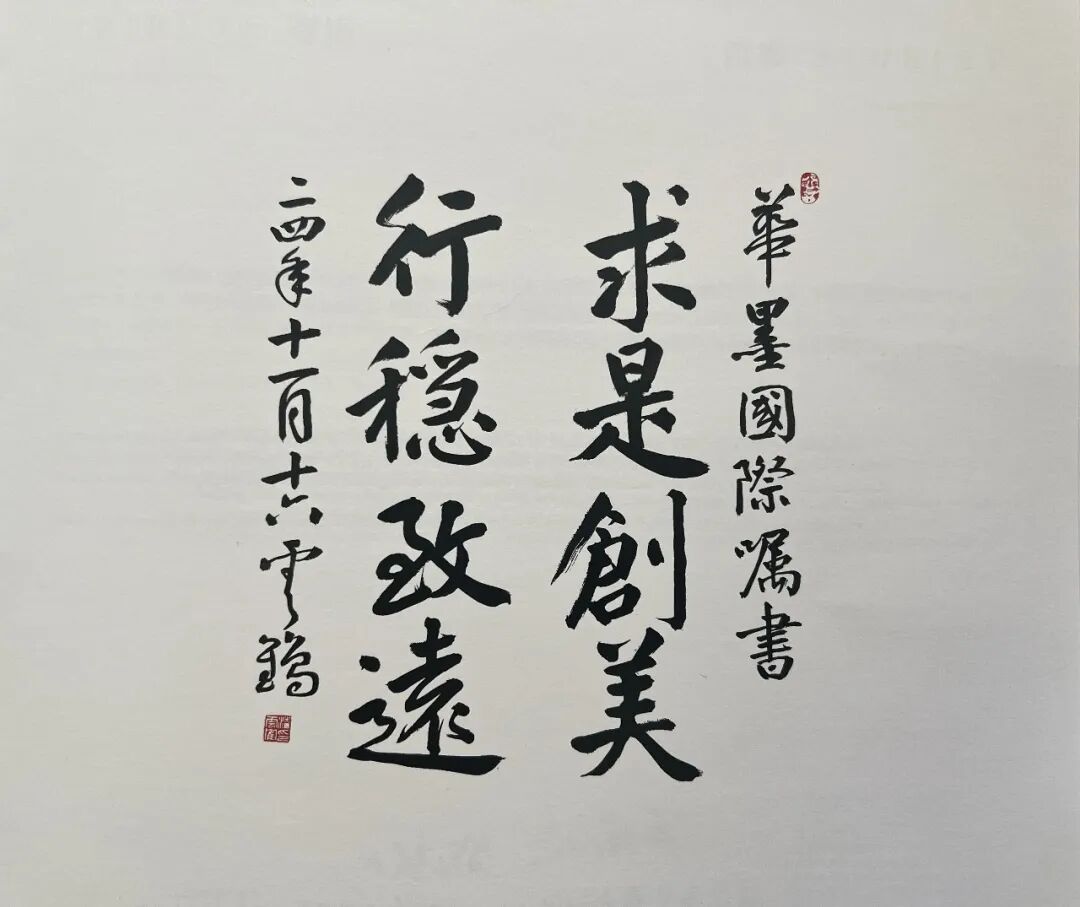 華墨國際囑書
求是創美
行穩致遠
二四年十一月十六雲鶴